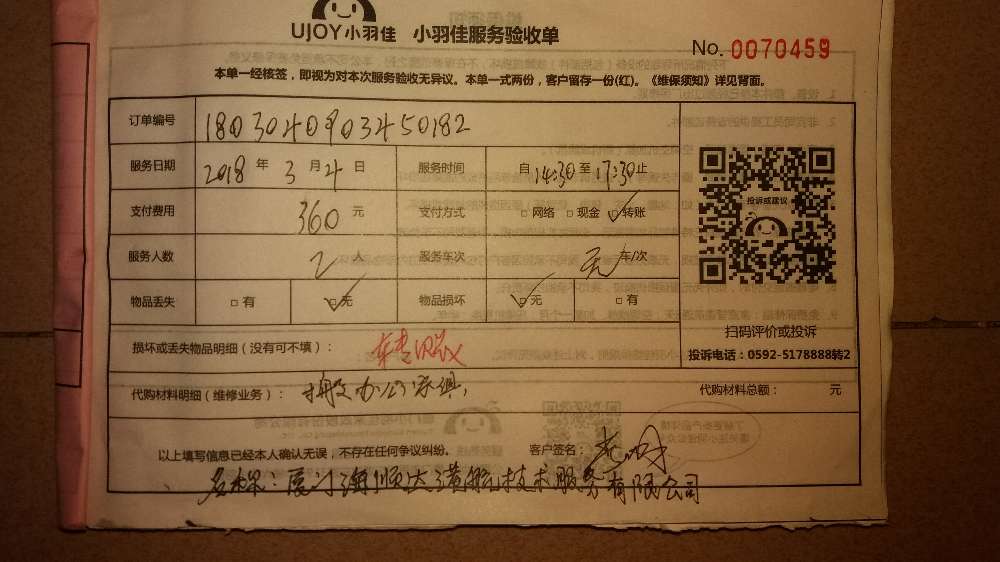 UJOY小羽佳 小羽佳服务验收单
No. 0070459
本单一经核签，即视为对本次服务验收无异议。本单一式两份，客户留存一份(红)。《维保须知》详见背面。
订单编号 1803040903450182
服务日期 2018 年 3 月 4 日 服务时间 自 14:30 至 17:30 止
支付费用 360 元 支付方式 □网络 □现金 □转账
服务人数 2 人 服务车次 无 车/次
物品丢失 □有 □无 物品损坏 □无 □有
投诉或建议
扫码评价或投诉
投诉电话：0592-5178888转2
损坏或丢失物品明细（没有可不填）：
代购材料明细（维修业务）： 搬办公家俱， 代购材料总额： 元
以上填写信息已经本人确认无误，不存在任何争议纠纷。 客户签名：
名称：厦门海顺达港航技术服务有限公司